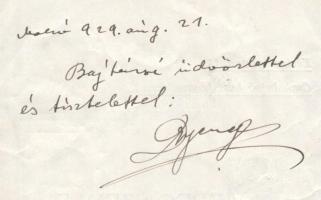 Makó 929. aug. 21.
Bajtársi üdvözlettel
és tisztelettel: